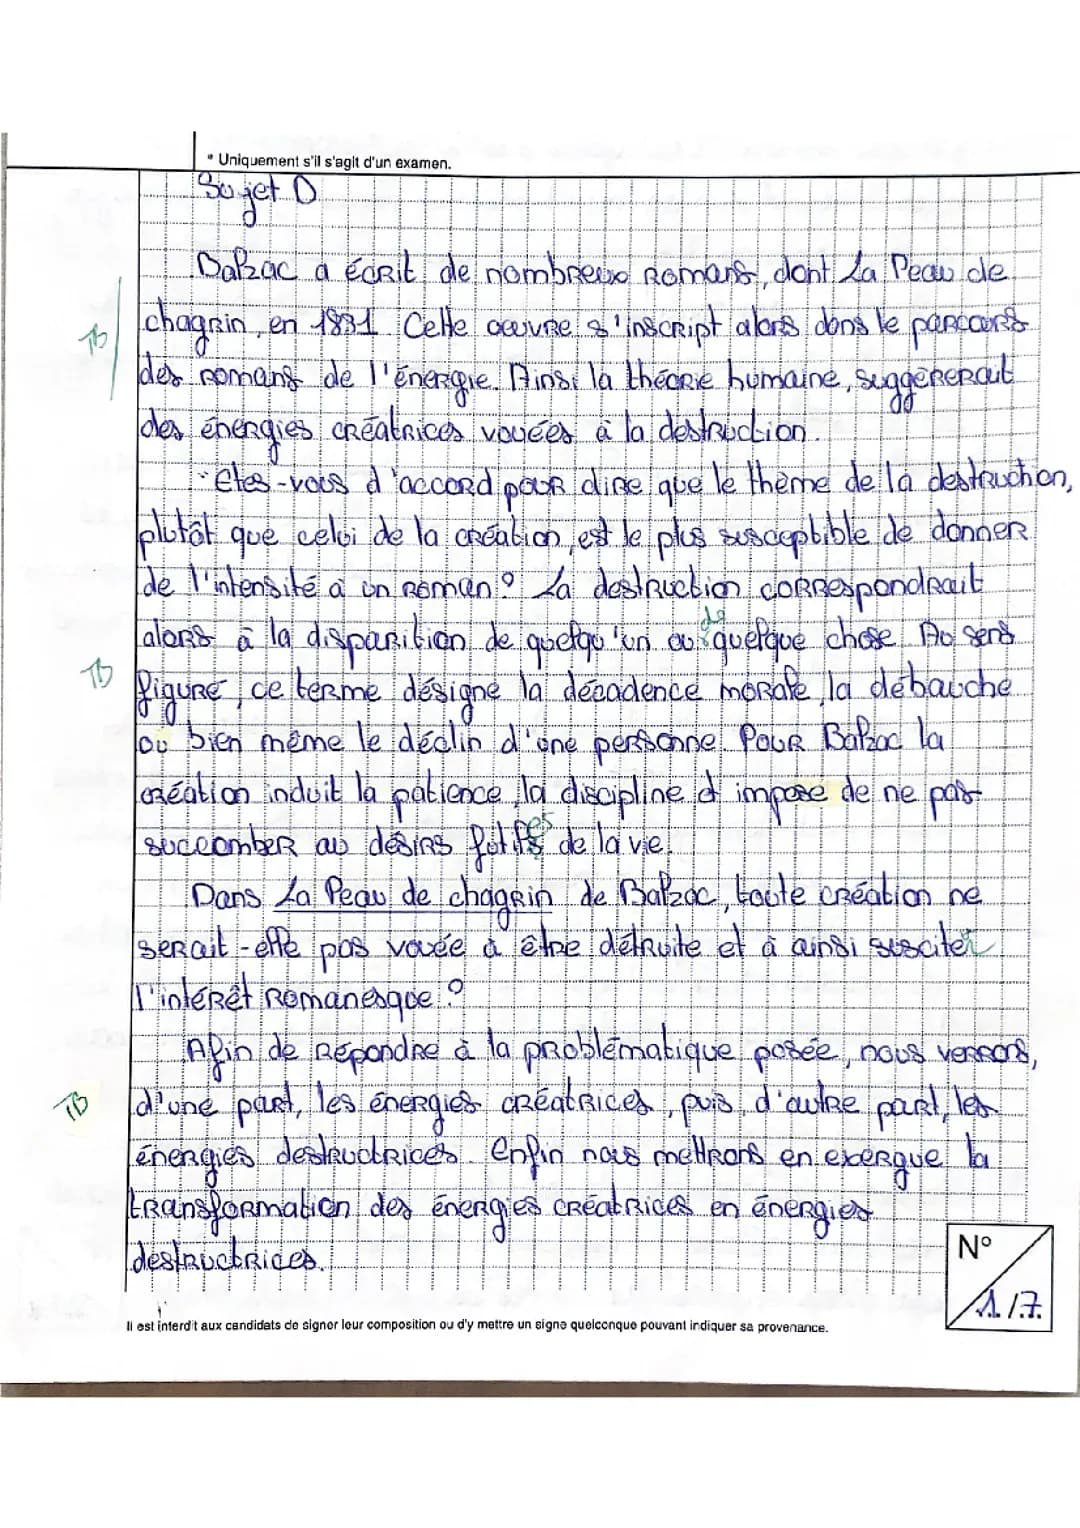 * Uniquement s'il s'agit d'un examen.
Sujet D
Balzac a écrit de nombreux romans, dont La Peau de
TB
chagrin, en 1831. Cette œuvre s'inscript alors dans le parcours
des romans de l'énergie. Ainsi la théorie humaine, suggérerait
des énergies créatrices vouées à la destruction.
Etes-vous d'accord pour dire que le thème de la destruction,
plutôt que celui de la création, est le plus susceptible de donner
de l'intensité à un roman ? La destruction correspondrait
alors à la disparition de quelqu'un ou de quelque chose. Au sens
TB
figuré, ce terme désigne la décadence morale, la débauche
ou bien même le déclin d'une personne. Pour Balzac la
création induit la patience, la discipline et impose de ne pas
succomber au désirs futiles de la vie.
Dans La Peau de chagrin de Balzac, toute création ne
serait-elle pas vouée à être détruite et à ainsi susciter
l'intérêt romanesque ?
Afin de répondre à la problématique posée, nous verrons,
TB
d'une part, les énergies créatrices, puis, d'autre part, les
énergies destructrices. Enfin nous mettrons en exergue la
transformation des énergies créatrices en énergies
destructrices.
N°
1/7
Il est interdit aux candidats de signer leur composition ou d'y mettre un signe quelconque pouvant indiquer sa provenance.